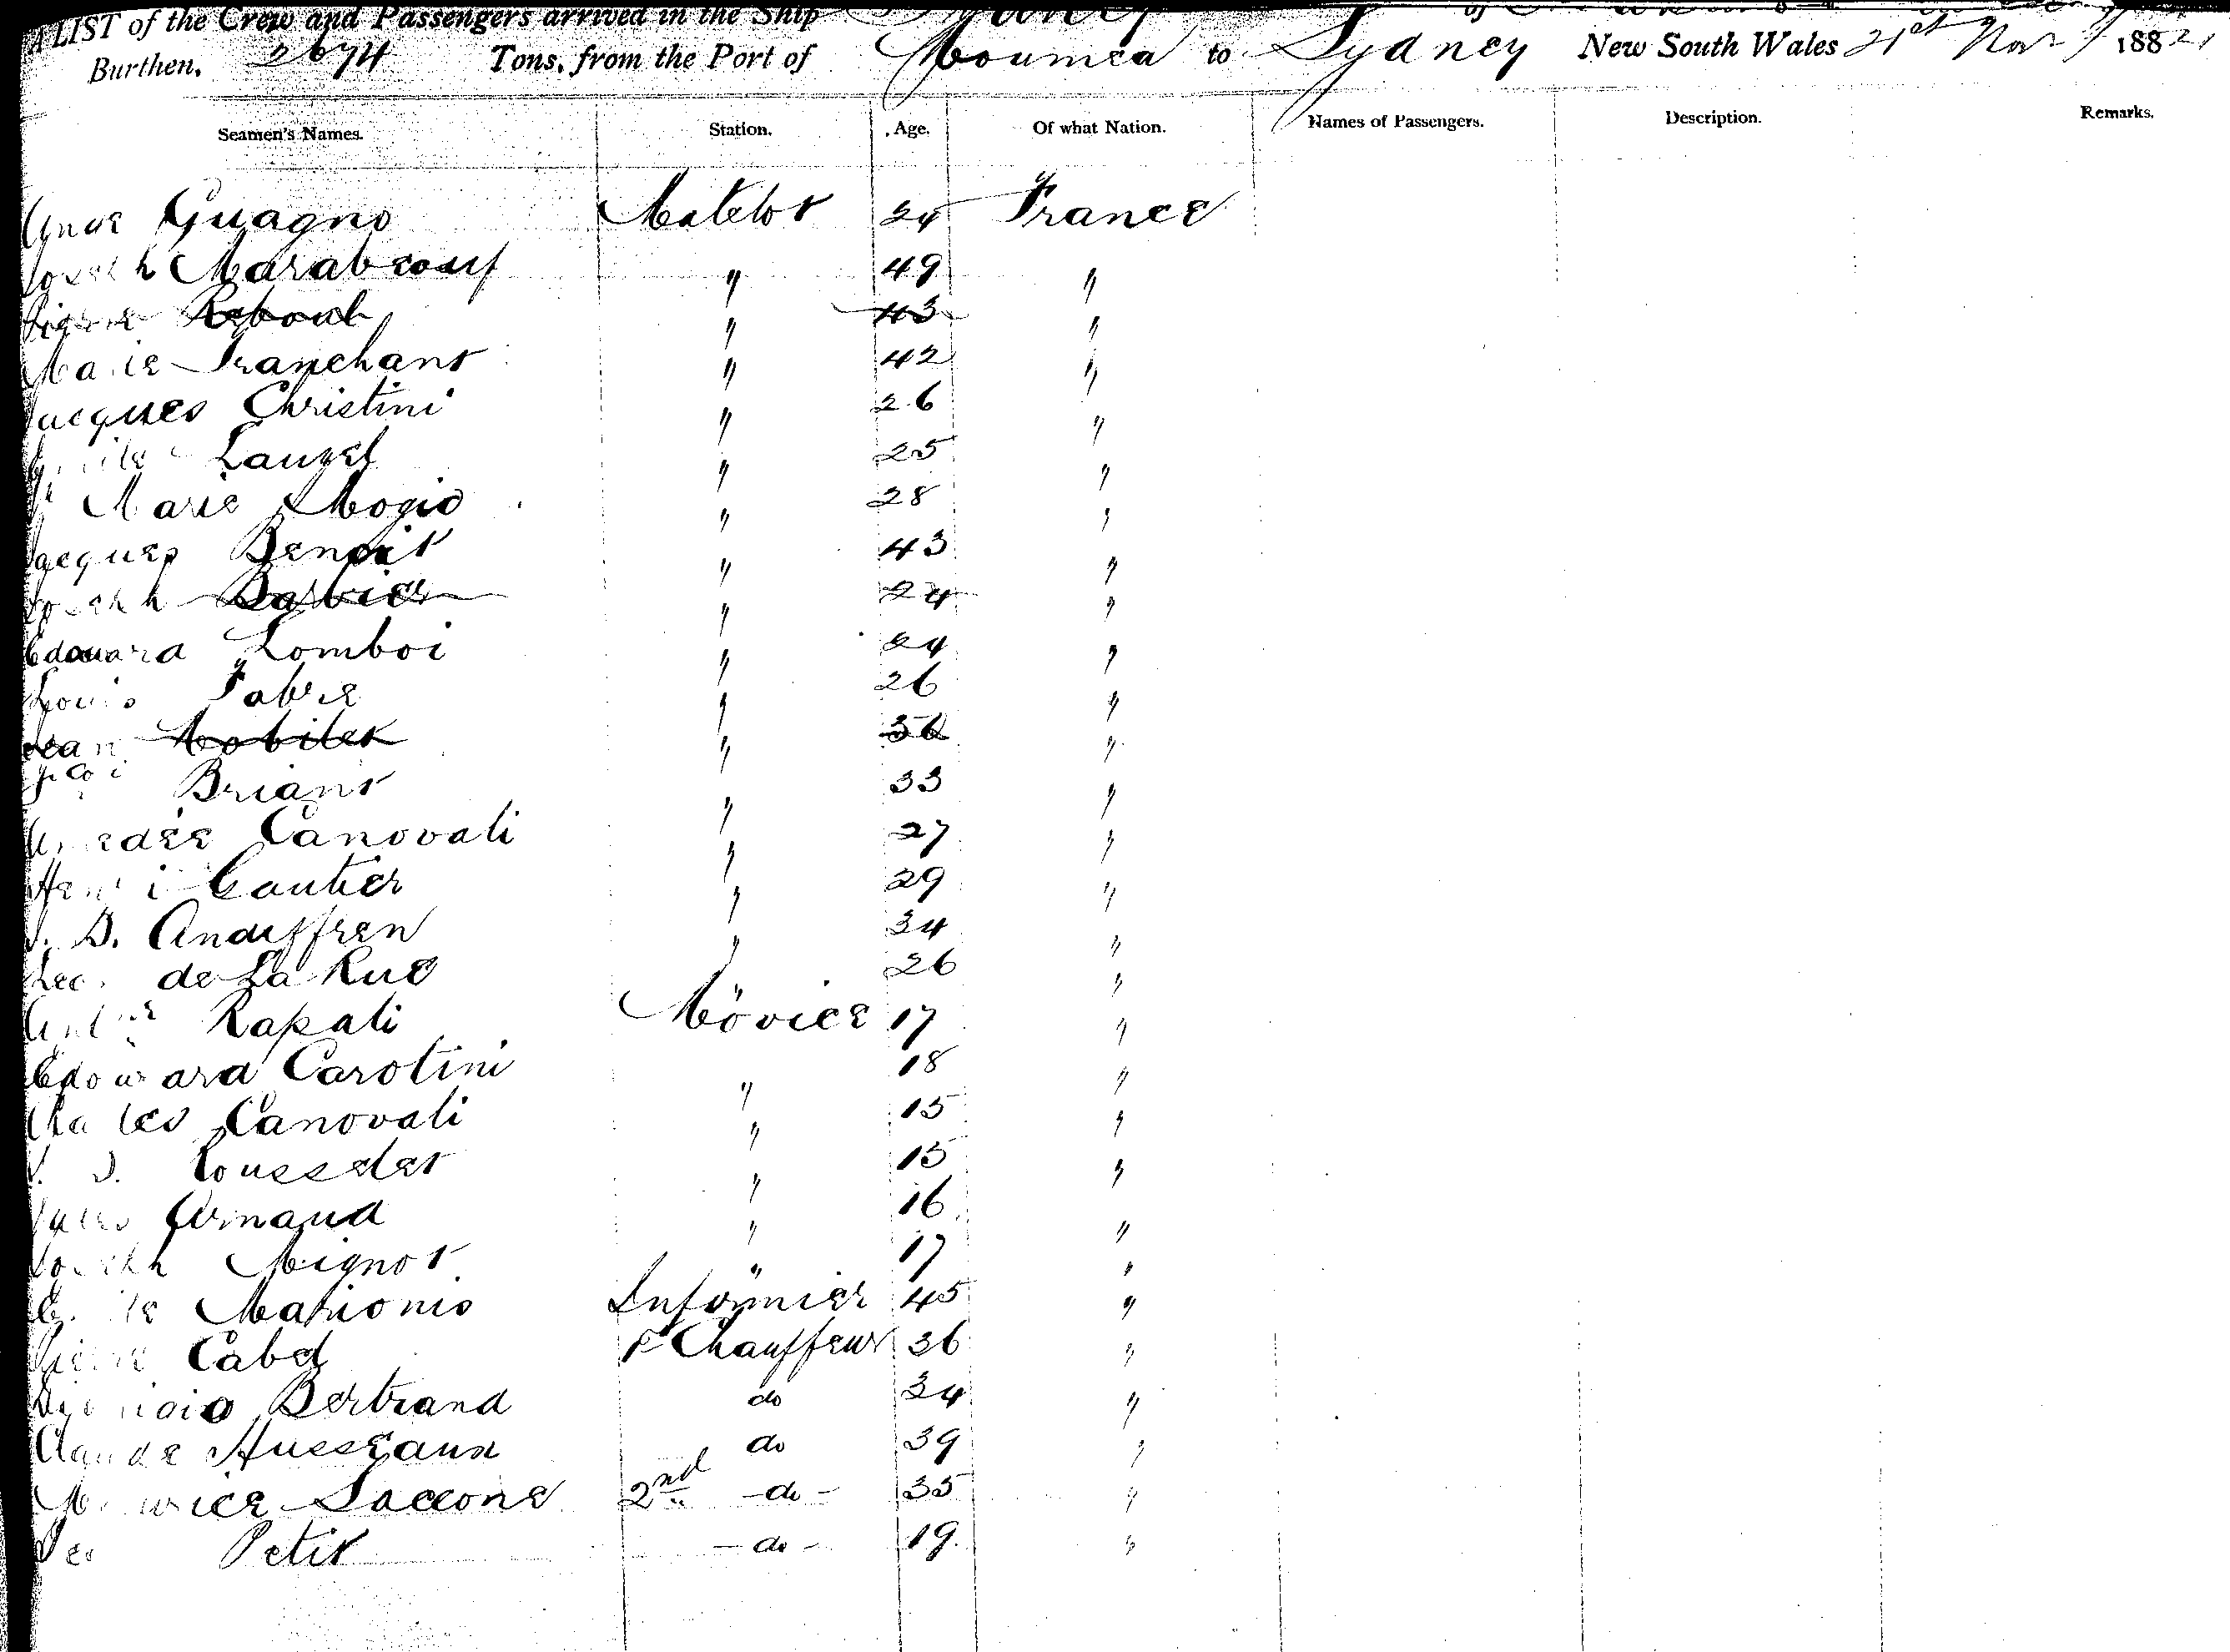 A LIST of the Crew and Passengers arrived in the Ship Sydney of
Burthen, 2674 Tons, from the Port of Noumea to Sydney New South Wales 21st Nov 1882
Seamen's Names. Station. Age. Of what Nation. Names of Passengers. Description. Remarks.
Guagno Matelot 24 France
Joseph Maraboeuf " 49 "
Pierre Reboul " 43 "
Marie Tranchant " 42 "
Jacques Christini " 26 "
Emile Lauzel " 25 "
Marie Mogio " 28 "
Jacques Benoit " 43 "
Joseph Barbier " 24 "
Edouard Lomboi " 24 "
Louis Fabre " 26 "
Jean " 36 "
Briant " 33 "
Amedée Canovali " 27 "
Henri Gautier " 29 "
J. B. Andiffren " 34 "
Leon de La Rue " 26 "
Rapali Novice 17 "
Edouard Carotini " 18 "
Charles Canovali " 15 "
Rousselet " 15 "
Jules Arnaud " 16 "
Joseph Mignot " 17 "
Emile Marionis Infirmier 45 "
Pierre Cabel Chauffeur 36 "
Bertrand do 34 "
Claude Husseaux do 39 "
Maurice Saccone 2nd - do - 35 "
Petit - do - 19 "